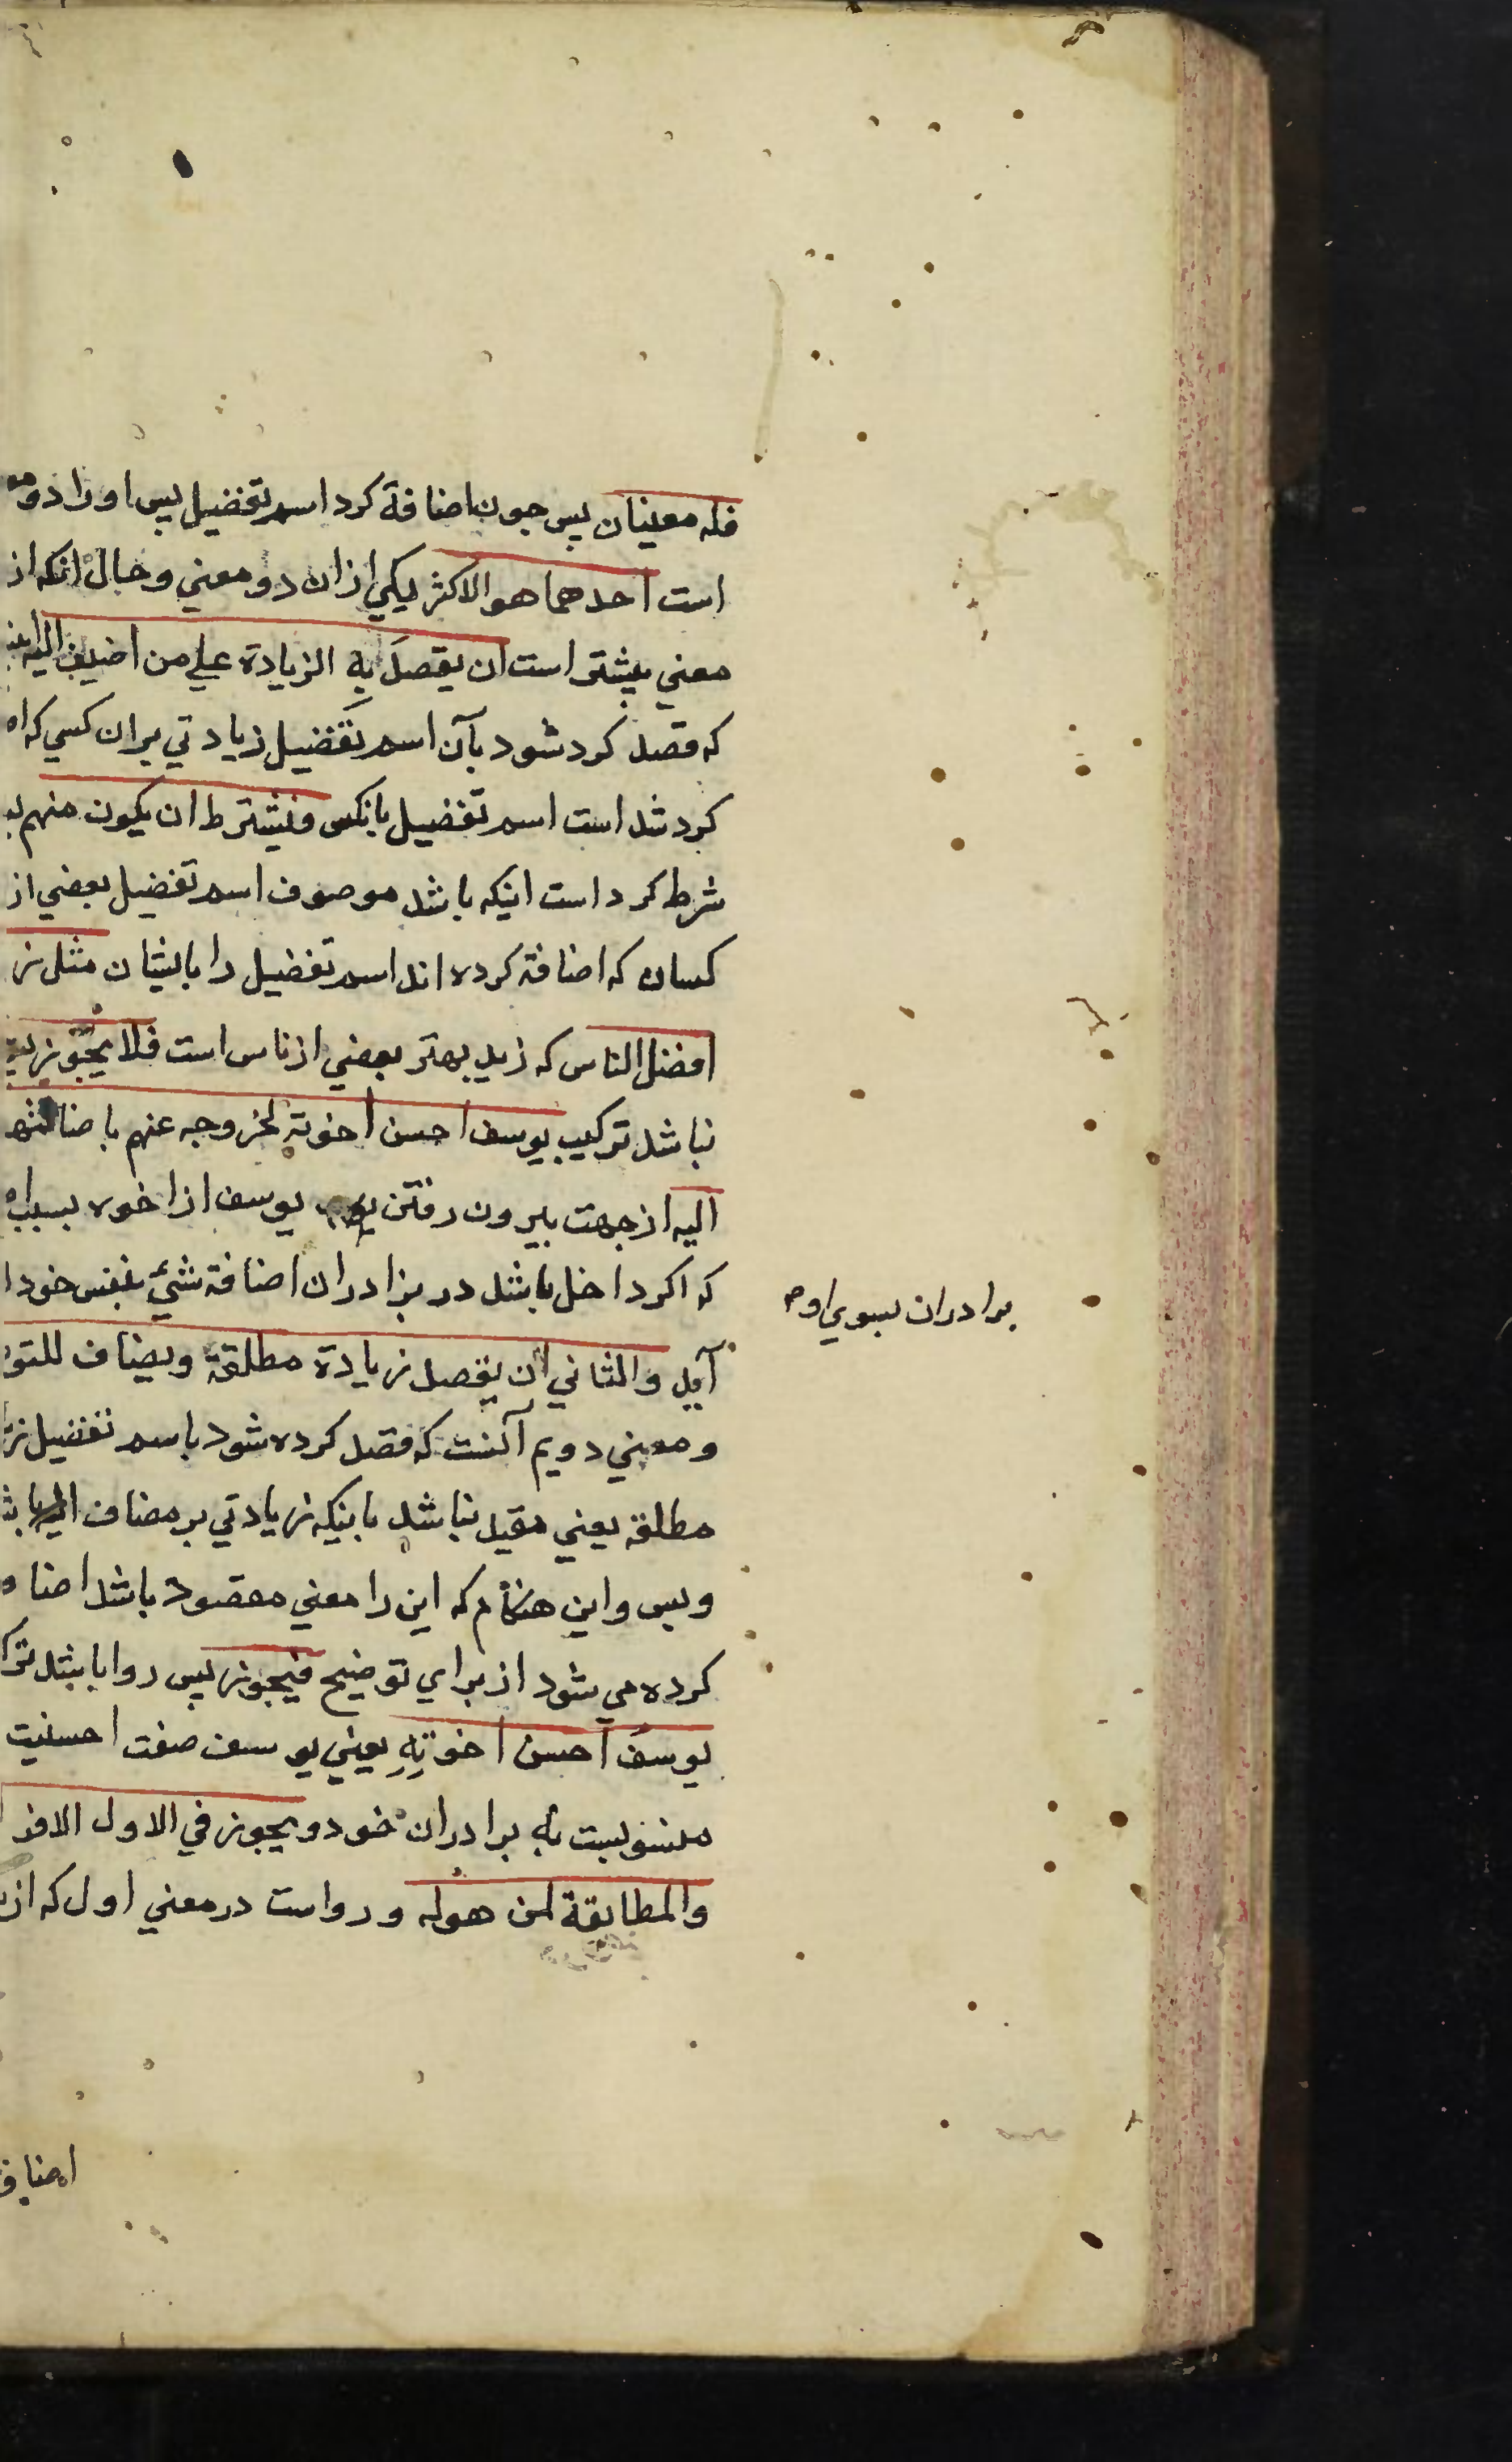 فله معنيان پس چون اضافة کرد اسم تفضیل پس اورا دو
است احدهما هو الاکثر یکي ازان دو معني و حال آنکه از
معني بیشتر است ان یقصد به الزیادة علي من اضیف الیه
که قصد کرد شود بآن اسم تفضیل زیادتي بران کسي که
کرد شد است اسم تفضیل بانکس فیشترط ان یکون منهم
شرط کرد است اینکه باشد موصوف اسم تفضیل بعضي از
کسان که اضافة کرده اند اسم تفضیل را بایشان مثل
افضل الناس که زید بهتر بعضي از ناس است فلا یجوز
نباشد ترکیب یوسف احسن اخوته لخروجه عنهم
الیه از جهت بیرون رفتن یوسف از اخوه بسبب
که اکر داخل باشد در برادران اضافة شيء بنفس خود
برادران بسوي او
آید والثاني ان یقصد زیادة مطلقة ویضاف
ومعني دویم آنست که قصد کرده شود باسم تفضیل
مطلقة یعني مقید نباشد باینکه زیادتي بر مضاف الیه
وبس واین هنکام که این را معني مقصود باشد
کرده مي شود از براي توضیح فیجوز پس روا باشد
یوسف احسن اخوته یعني یوسف صفت احسنیت
منسوبست به برادران خود ویجوز في الاول
والمطابقة لمن هوله ورواست در معني اول که